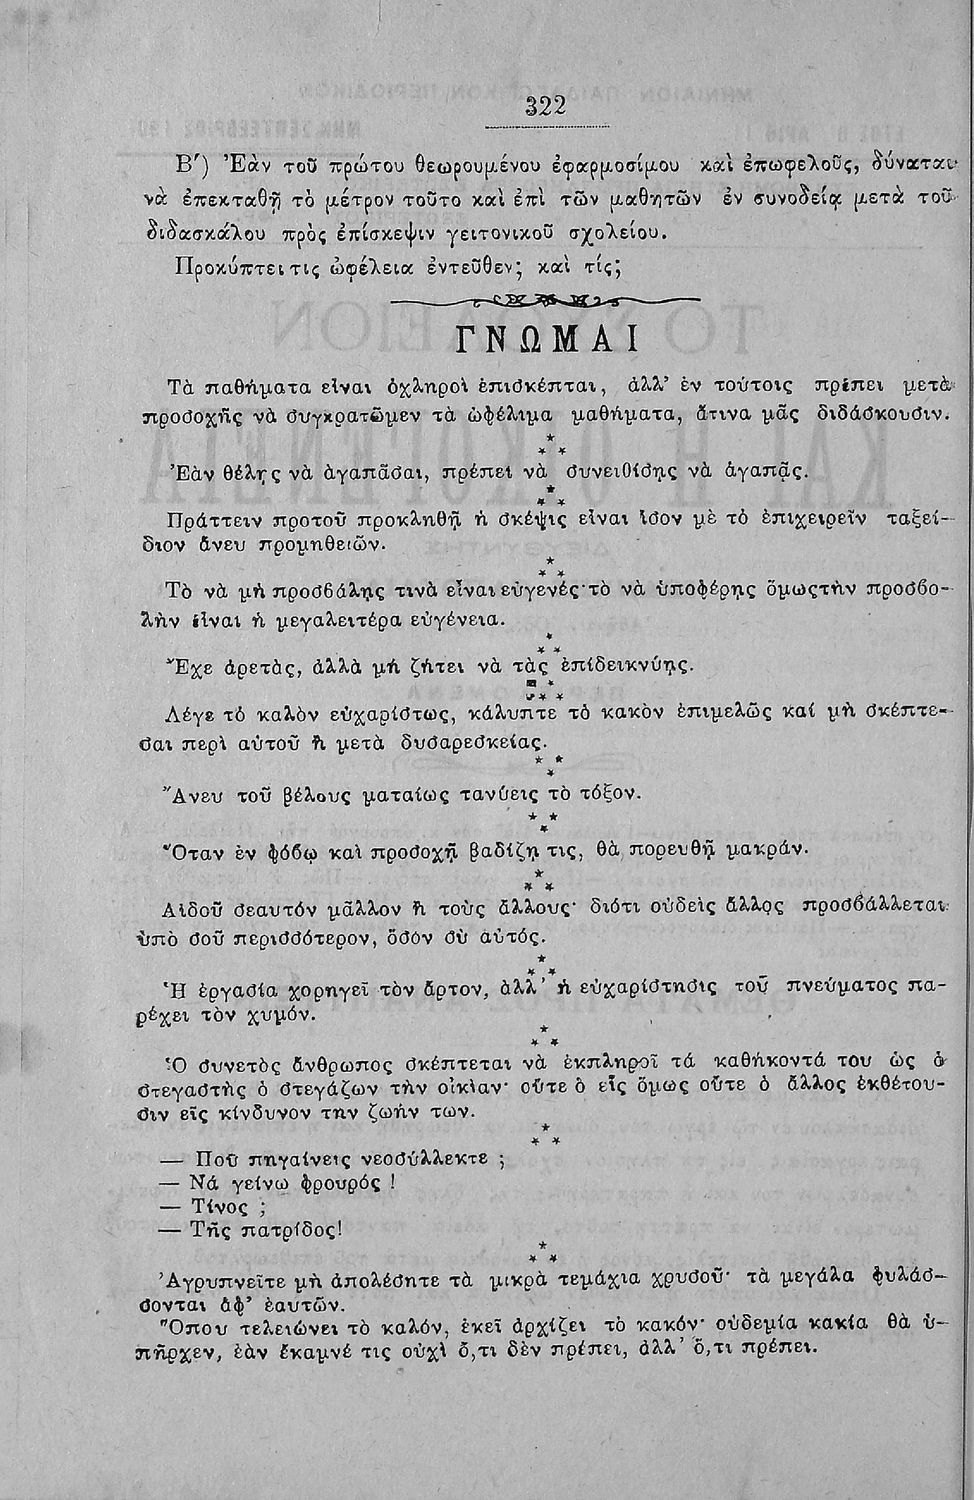 322
Β′) Ἐὰν τοῦ πρώτου θεωρουμένου ἐφαρμοσίμου καὶ ἐπωφελοῦς, δύναται
νὰ ἐπεκταθῇ τὸ μέτρον τοῦτο καὶ ἐπὶ τῶν μαθητῶν ἐν συνοδείᾳ μετὰ τοῦ
διδασκάλου πρὸς ἐπίσκεψιν γειτονικοῦ σχολείου.
Προκύπτει τις ὠφέλεια ἐντεῦθεν; καὶ τίς;
ΓΝΩΜΑΙ
Τὰ παθήματα εἶναι ὀχληροὶ ἐπισκέπται, ἀλλ’ ἐν τούτοις πρέπει μετὰ
προσοχῆς νὰ συγκρατῶμεν τὰ ὠφέλιμα μαθήματα, ἅτινα μᾶς διδάσκουσιν.
* * *
Ἐὰν θέλῃς νὰ ἀγαπᾶσαι, πρέπει νὰ συνειθίσῃς νὰ ἀγαπᾷς.
* * *
Πράττειν προτοῦ προκληθῇ ἡ σκέψις εἶναι ἴσον μὲ τὸ ἐπιχειρεῖν ταξεί-
διον ἄνευ προμηθειῶν.
* * *
Τὸ νὰ μὴ προσβάλῃς τινὰ εἶναι εὐγενές· τὸ νὰ ὑποφέρῃς ὅμως τὴν προσβο-
λὴν εἶναι ἡ μεγαλειτέρα εὐγένεια.
* * *
Ἔχε ἀρετὰς, ἀλλὰ μὴ ζήτει νὰ τὰς ἐπιδεικνύῃς.
* * *
Λέγε τὸ καλὸν εὐχαρίστως, κάλυπτε τὸ κακὸν ἐπιμελῶς καί μὴ σκέπτε-
σαι περὶ αὐτοῦ ἢ μετὰ δυσαρεσκείας.
* * *
Ἄνευ τοῦ βέλους ματαίως τανύεις τὸ τόξον.
* * *
Ὅταν ἐν φόβῳ καὶ προσοχῇ βαδίζῃ τις, θὰ πορευθῇ μακράν.
* * *
Αἰδοῦ σεαυτόν μᾶλλον ἢ τοὺς ἄλλους· διότι οὐδεὶς ἄλλος προσβάλλεται
ὑπὸ σοῦ περισσότερον, ὅσον σὺ αὐτός.
* * *
Ἡ ἐργασία χορηγεῖ τὸν ἄρτον, ἀλλ’ ἡ εὐχαρίστησις τοῦ πνεύματος πα-
ρέχει τὸν χυμόν.
* * *
Ὁ συνετὸς ἄνθρωπος σκέπτεται νὰ ἐκπληροῖ τά καθήκοντά του ὡς ὁ
στεγαστὴς ὁ στεγάζων τὴν οἰκίαν· οὔτε ὁ εἷς ὅμως οὔτε ὁ ἄλλος ἐκθέτου-
σιν εἰς κίνδυνον την ζωήν των.
* * *
— Ποῦ πηγαίνεις νεοσύλλεκτε ;
— Νά γείνω φρουρός !
— Τίνος ;
— Τῆς πατρίδος!
* * *
Ἀγρυπνεῖτε μὴ ἀπολέσητε τὰ μικρὰ τεμάχια χρυσοῦ· τὰ μεγάλα φυλάσ-
σονται ἀφ’ ἑαυτῶν.
Ὅπου τελειώνει τὸ καλόν, ἐκεῖ ἀρχίζει τὸ κακόν· οὐδεμία κακία θὰ ὑ-
πῆρχεν, ἐὰν ἔκαμνέ τις οὐχὶ ὅ,τι δὲν πρέπει, ἀλλ’ ὅ,τι πρέπει.